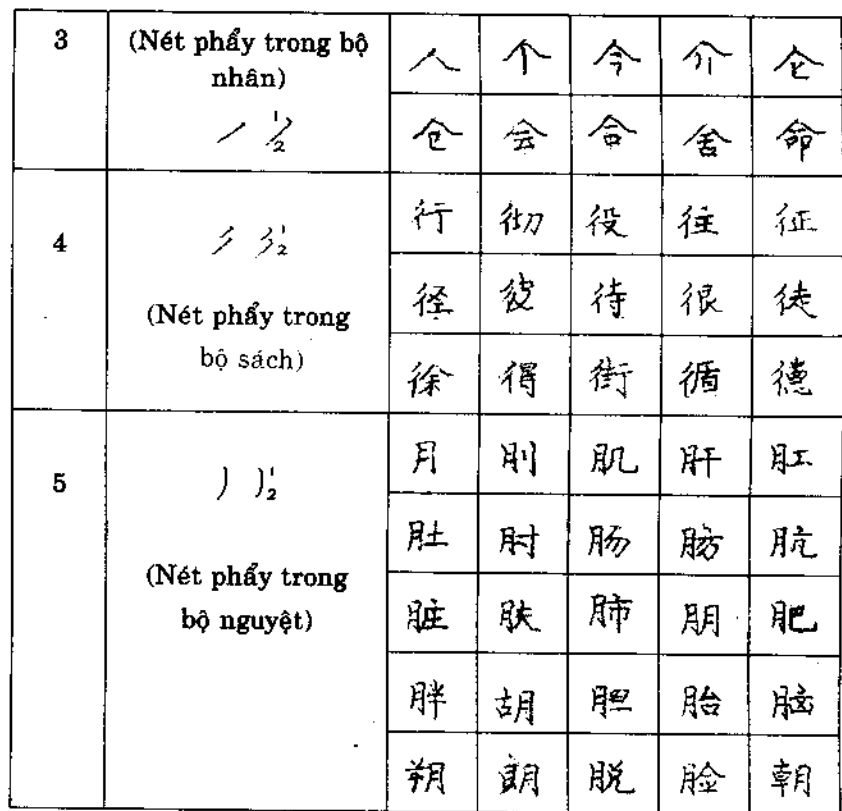 3
(Nét phẩy trong bộ
nhân)
丿 1 2
人 个 今 介 仑
仓 会 合 舍 命
4
1 2
(Nét phẩy trong
bộ sách)
行 彻 役 往 征
径 彼 待 很 徒
徐 得 街 循 德
5
丿 1 2
(Nét phẩy trong
bộ nguyệt)
月 刖 肌 肝 肛
肚 肘 肠 肪 肮
脏 肤 肺 朋 肥
胖 胡 胆 胎 脑
朔 朗 脱 脸 朝